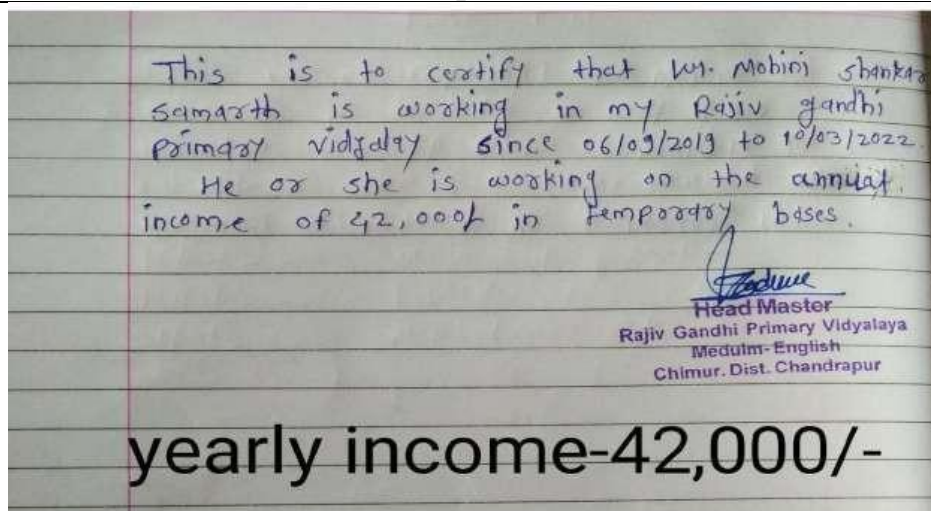 This is to certify that Ms. Mohini Shankar
Samarth is working in my Rajiv gandhi
primary vidyalay since 06/09/2019 to 10/03/2022.
He or she is working on the annual
income of 42,000/- in temporary bases.
Head Master
Rajiv Gandhi Primary Vidyalaya
Meduim-English
Chimur. Dist. Chandrapur
yearly income-42,000/-